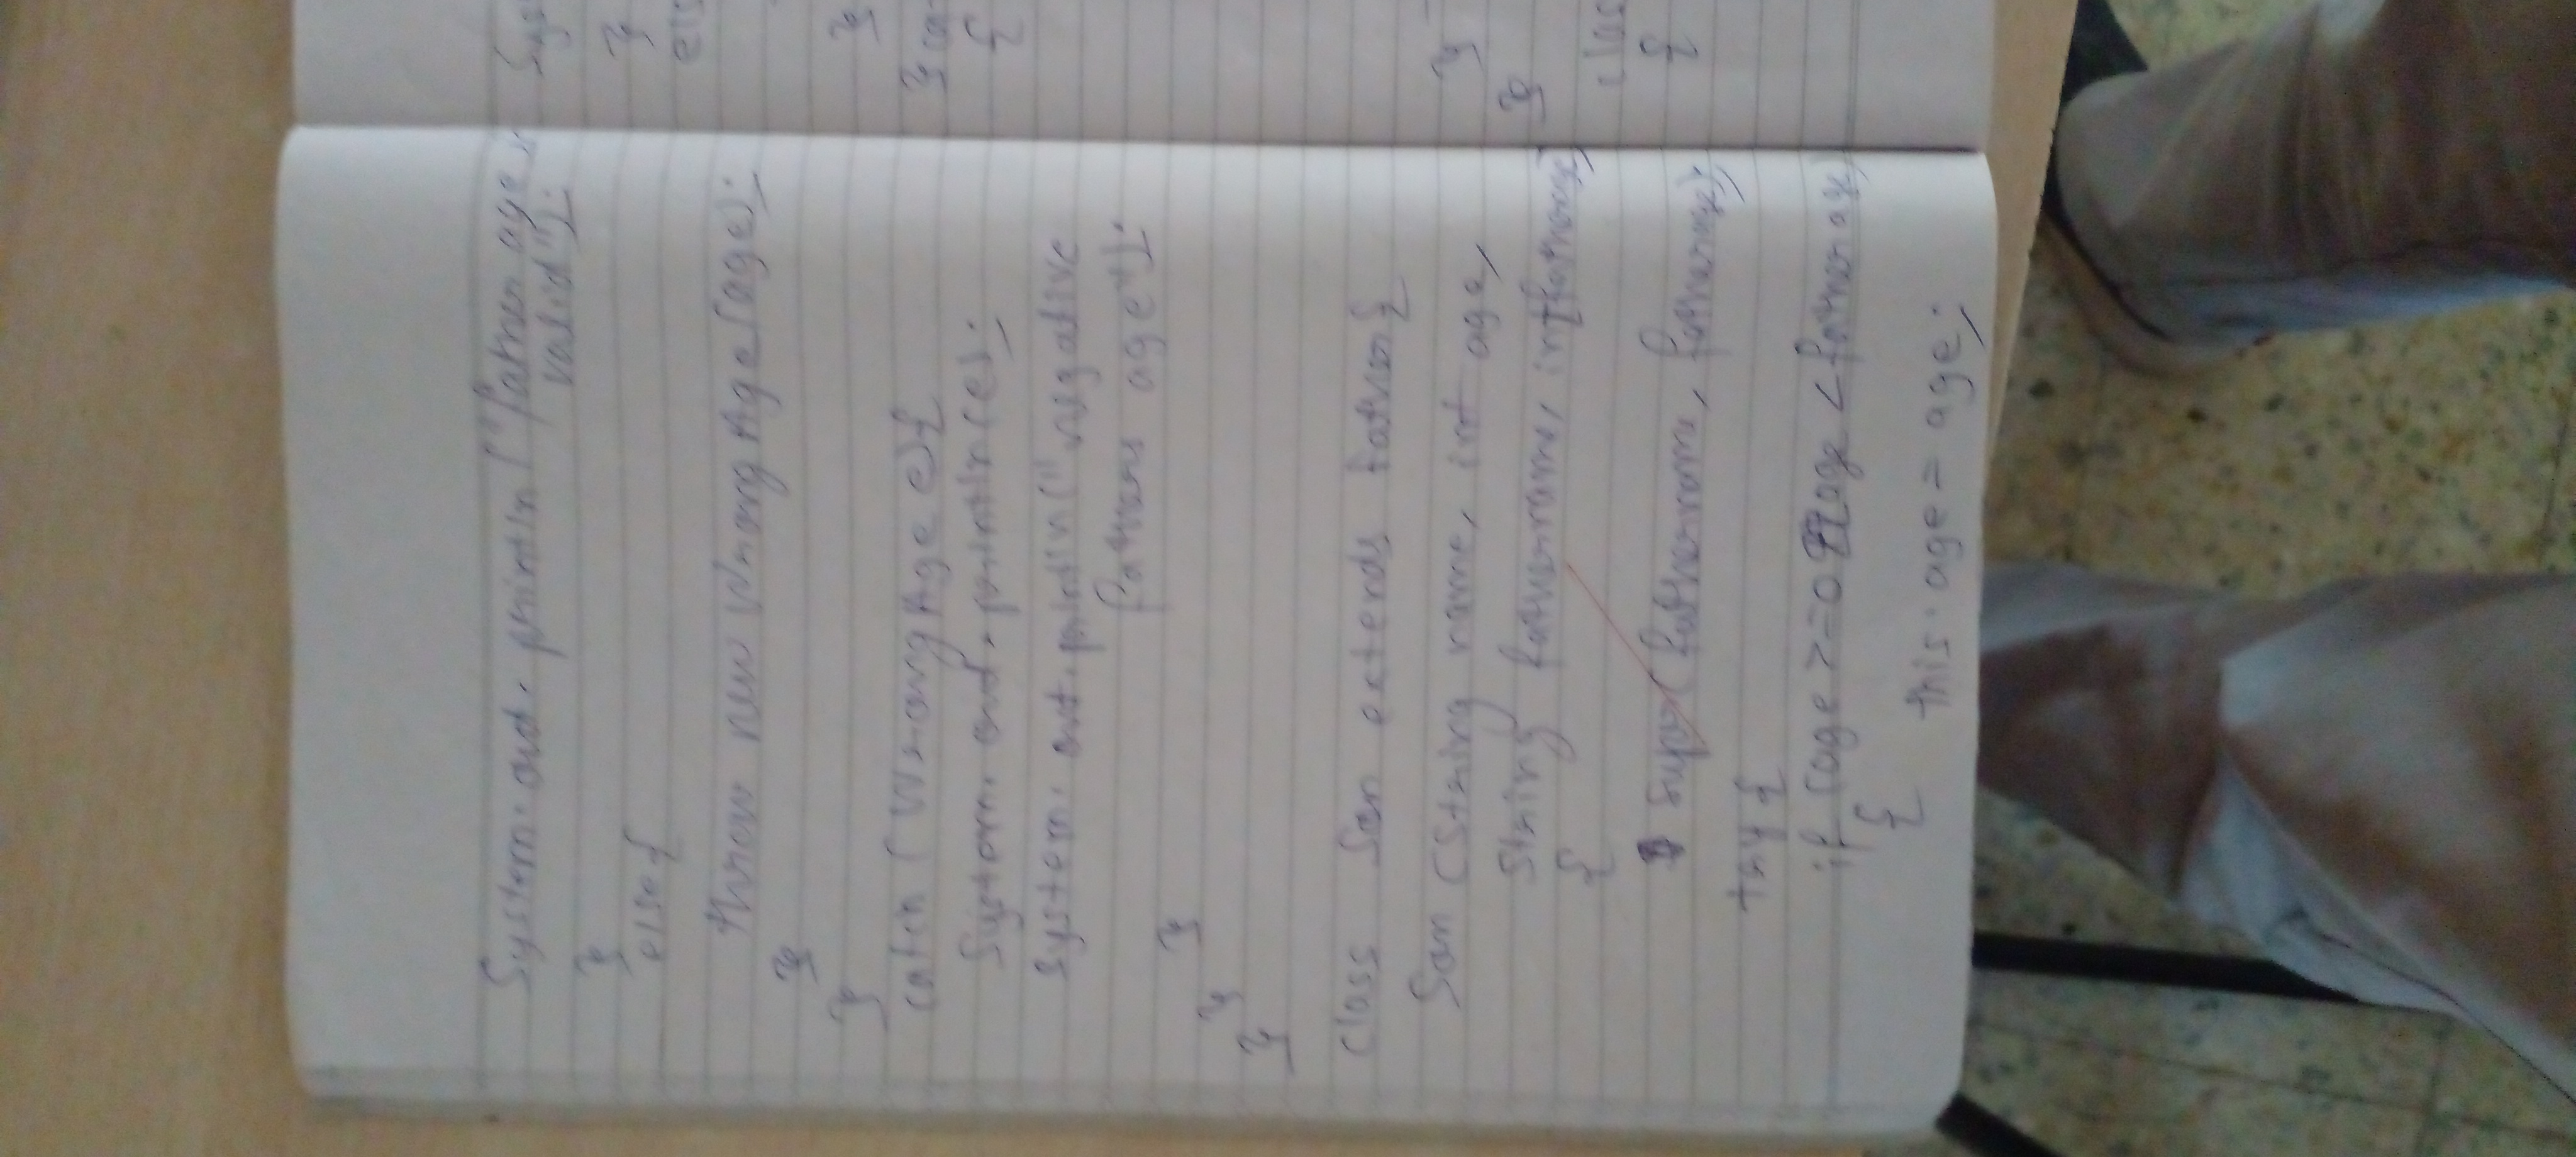 System.out.println("father age is
valid");
}
else{
throw new WrongAge(age);
}
}
catch (WrongAge e){
System.out.println(e);
System.out.println("negative
fathers age");
}
}
}
class Son extends father{
Son (String name, int age,
String fathername, int fatherage)
{
super(fathername, fatherage);
try{
if (age >= 0 age < father age)
{
this.age = age;
Sys
}
els
}
}
{
}
}
clas
{